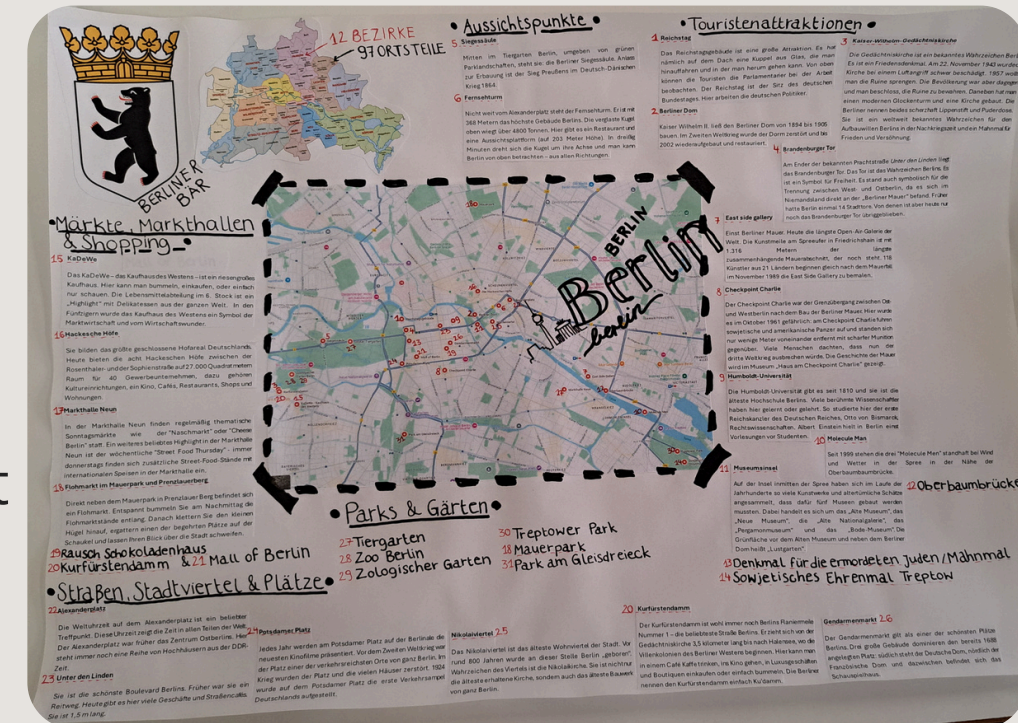 12 BEZIRKE
97 ORTSTEILE
BERLINER
BÄR
• Aussichtspunkte •
5 Siegessäule
Mitten im Tiergarten Berlin, umgeben von grünen
Parklandschaften, steht sie: die Berliner Siegessäule. Anlass
zur Erbauung ist der Sieg Preußens im Deutsch-Dänischen
Krieg 1864.
6 Fernsehturm
Nicht weit vom Alexanderplatz steht der Fernsehturm. Er ist mit
368 Metern das höchste Gebäude Berlins. Die verglaste Kugel
oben wiegt über 4800 Tonnen. Hier gibt es ein Restaurant und
eine Aussichtsplattform (auf 203 Meter Höhe). In dreißig
Minuten dreht sich die Kugel um ihre Achse und man kann
Berlin von oben betrachten – aus allen Richtungen.
• Touristenattraktionen •
1 Reichstag
Das Reichstagsgebäude ist eine große Attraktion. Es hat
nämlich auf dem Dach eine Kuppel aus Glas, die man
hinauffahren und in der man herum gehen kann. Von oben
können die Touristen die Parlamentarier bei der Arbeit
beobachten. Der Reichstag ist der Sitz des deutschen
Bundestages. Hier arbeiten die deutschen Politiker.
2 Berliner Dom
Kaiser Wilhelm II. ließ den Berliner Dom von 1894 bis 1905
bauen. Im Zweiten Weltkrieg wurde der Dorm zerstört und bis
2002 wiederaufgebaut und restauriert.
3 Kaiser-Wilhelm-Gedächtniskirche
Die Gedächtniskirche ist ein bekanntes Wahrzeichen Berlins.
Es ist ein Friedensdenkmal. Am 22. November 1943 wurde die
Kirche bei einem Luftangriff schwer beschädigt. 1957 wollte
man die Ruine sprengen. Die Bevölkerung war aber dagegen
und man beschloss, die Ruine zu bewahren. Daneben hat man
einen modernen Glockenturm und eine Kirche gebaut. Die
Berliner nennen beides scherzhaft Lippenstift und Puderdose.
Sie ist ein weltweit bekanntes Wahrzeichen für den
Aufbauwillen Berlins in der Nachkriegszeit und ein Mahnmal für
Frieden und Versöhnung.
4 Brandenburger Tor
Am Ender der bekannten Prachtstraße Unter den Linden liegt
das Brandenburger Tor. Das Tor ist das Wahrzeichen Berlins. Es
ist ein Symbol für Freiheit. Es stand auch symbolisch für die
Trennung zwischen West- und Ostberlin, da es sich im
Niemandsland direkt an der „Berliner Mauer" befand. Früher
hatte Berlin einmal 14 Stadttore. Von denen ist aber heute nur
noch das Brandenburger Tor übriggeblieben.
7 East side gallery
Einst Berliner Mauer. Heute die längste Open-Air-Galerie der
Welt. Die Kunstmeile am Spreeufer in Friedrichshain ist mit
1.316 Metern der längste
zusammenhängende Mauerabschnitt, der noch steht. 118
Künstler aus 21 Ländern beginnen gleich nach dem Mauerfall
im November 1989 die East Side Gallery zu bemalen.
8 Checkpoint Charlie
Der Checkpoint Charlie war der Grenzübergang zwischen Ost-
und Westberlin nach dem Bau der Berliner Mauer. Hier wurde
es im Oktober 1961 gefährlich, am Checkpoint Charlie fuhren
sowjetische und amerikanische Panzer auf und standen sich
nur wenige Meter voneinander entfernt mit scharfer Munition
gegenüber. Viele Menschen dachten, dass nun der
dritte Weltkrieg ausbrechen würde. Die Geschichte der Mauer
wird im Museum „Haus am Checkpoint Charlie" gezeigt.
9 Humboldt-Universität
Die Humboldt-Universität gibt es seit 1810 und sie ist die
älteste Hochschule Berlins. Viele berühmte Wissenschaftler
haben hier gelernt oder gelehrt. So studierte hier der erste
Reichskanzler des Deutschen Reiches, Otto von Bismarck,
Rechtswissenschaften. Albert Einstein hielt in Berlin einst
Vorlesungen vor Studenten.
10 Molecule Man
Seit 1999 stehen die drei "Molecule Men" standhaft bei Wind
und Wetter in der Spree in der Nähe der
Oberbaumbaumbrücke.
11 Museumsinsel
Auf der Insel inmitten der Spree haben sich im Laufe der
Jahrhunderte so viele Kunstwerke und altertümliche Schätze
angesammelt, dass dafür fünf Museen gebaut werden
mussten. Dabei handelt es sich um das „Alte Museum", das
„Neue Museum", die „Alte Nationalgalerie", das
„Pergamonmuseum" und das „Bode-Museum". Die
Grünfläche vor dem Alten Museum und neben dem Berliner
Dom heißt „Lustgarten"
12 Oberbaumbrücke
13 Denkmal für die ermordeten Juden/Mahnmal
14 Sowjetisches Ehrenmal Treptow
• Märkte, Markthallen
& Shopping •
15 KaDeWe
Das KaDeWe – das Kaufhaus des Westens – ist ein riesengroßes
Kaufhaus. Hier kann man bummeln, einkaufen, oder einfach
nur schauen. Die Lebensmittelabteilung im 6. Stock ist ein
„Highlight" mit Delikatessen aus der ganzen Welt. In den
Fünfzigern wurde das Kaufhaus des Westens ein Symbol der
Marktwirtschaft und vom Wirtschaftswunder.
16 Hackesche Höfe
Sie bilden das größte geschlossene Hofareal Deutschlands.
Heute bieten die acht Hackeschen Höfe zwischen der
Rosenthaler- und der Sophienstraße auf 27.000 Quadratmetern
Raum für 40 Gewerbeunternehmen, dazu gehören
Kultureinrichtungen, ein Kino, Cafés, Restaurants, Shops und
Wohnungen.
17 Markthalle Neun
In der Markthalle Neun finden regelmäßig thematische
Sonntagsmärkte wie der "Naschmarkt" oder "Cheese
Berlin" statt. Ein weiteres beliebtes Highlight in der Markthalle
Neun ist der wöchentliche "Street Food Thursday" - immer
donnerstags finden sich zusätzliche Street-Food-Stände mit
internationalen Speisen in der Markthalle ein.
18 Flohmarkt im Mauerpark und Prenzlauerberg
Direkt neben dem Mauerpark in Prenzlauer Berg befindet sich
ein Flohmarkt. Entspannt bummeln Sie am Nachmittag die
Flohmarktstände entlang. Danach klettern Sie den kleinen
Hügel hinauf, ergattern einen der begehrten Plätze auf der
Schaukel und lassen Ihren Blick über die Stadt schweifen.
19 Rausch Schokoladenhaus
20 Kurfürstendamm & 21 Mall of Berlin
BERLIN
Berlin
berlin
• Parks & Gärten •
27 Tiergarten
28 Zoo Berlin
29 Zologischer Garten
30 Treptower Park
18 Mauerpark
31 Park am Gleisdreieck
• Straßen, Stadtviertel & Plätze •
22 Alexanderplatz
Die Weltuhrzeit auf dem Alexanderplatz ist ein beliebter
Treffpunkt. Diese Uhrzeit zeigt die Zeit in allen Teilen der Welt.
Der Alexanderplatz war früher das Zentrum Ostberlins. Hier
steht immer noch eine Reihe von Hochhäusern aus der DDR-
Zeit.
23 Unter den Linden
Sie ist die schönste Boulevard Berlins. Früher war sie ein
Reitweg. Heute gibt es hier viele Geschäfte und Straßencafés.
Sie ist 1,5 m lang.
24 Potsdamer Platz
Jedes Jahr werden am Potsdamer Platz auf der Berlinale die
neuesten Kinofilme präsentiert. Vor dem Zweiten Weltkrieg war
der Platz einer der verkehrsreichsten Orte von ganz Berlin. Im
Krieg wurden der Platz und die vielen Häuser zerstört. 1924
wurde auf dem Potsdamer Platz die erste Verkehrsampel
Deutschlands aufgestellt.
Nikolaiviertel 25
Das Nikolaiviertel ist das älteste Wohnviertel der Stadt. Vor
rund 800 Jahren wurde an dieser Stelle Berlin „geboren".
Wahrzeichen des Viertels ist die Nikolaikirche. Sie ist nicht nur
die älteste erhaltene Kirche, sondern auch das älteste Bauwerk
von ganz Berlin.
20 Kurfürstendamm
Der Kurfürstendamm ist wohl immer noch Berlins Flaniermeile
Nummer 1 – die beliebteste Straße Berlins. Er zieht sich von der
Gedächtniskirche 3,5 kilometer lang bis nach Halensee, wo die
Villenkolonien des Berliner Westens beginnen. Hier kann man
in einem Café Kaffe trinken, ins Kino gehen, in Luxusgeschäften
und Boutiquen einkaufen oder einfach bummeln. Die Berliner
nennen den Kurfürstendamm einfach Ku'damm.
Gendarmenmarkt 26
Der Gendarmenmarkt gilt als einer der schönsten Plätze
Berlins. Drei große Gebäude dominieren den bereits 1688
angelegten Platz: südlich steht der Deutsche Dom, nördlich der
Französische Dom und dazwischen befindet sich das
Schauspielhaus.